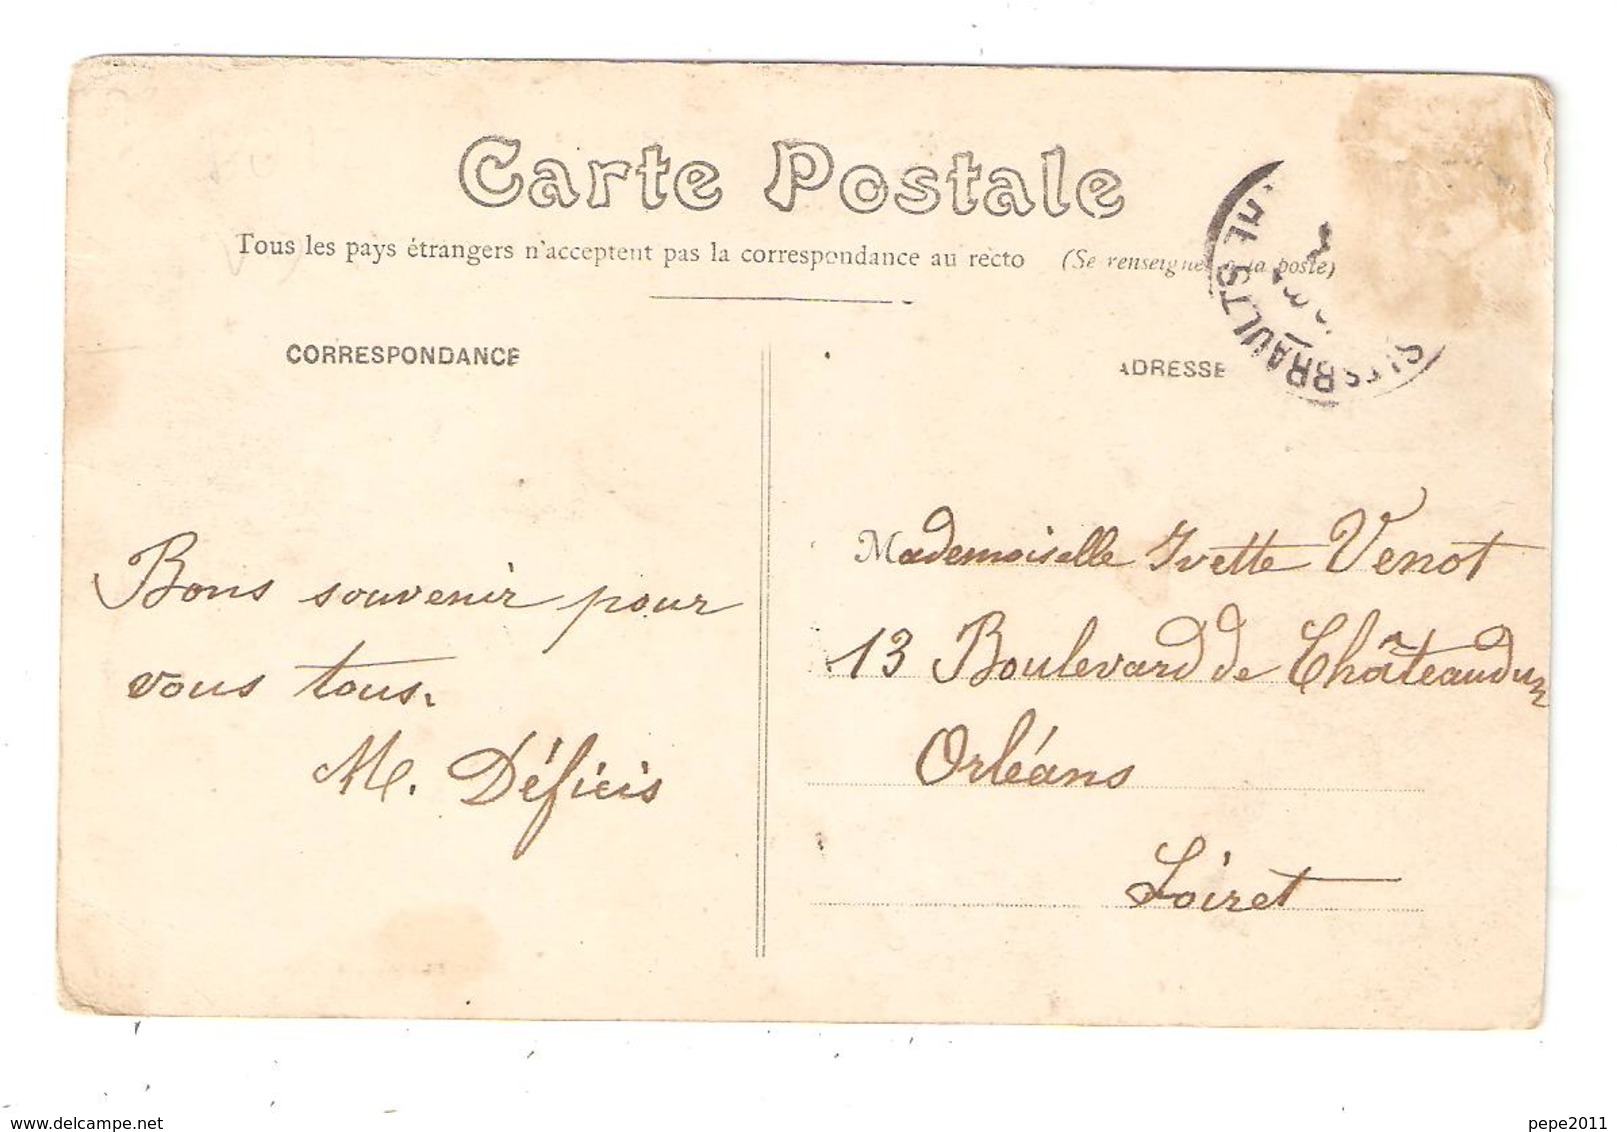 Carte Postale
Tous les pays étrangers n'acceptent pas la correspondance au recto (Se renseigner à la poste)
CORRESPONDANCE
ADRESSE
BRAULTS
Bons souvenir pour
vous tous.
M. Déficis
Mademoiselle Yvette Venot
13 Boulevard de Châteaudun
Orléans
Loiret
www.delcampe.net
pepe2011